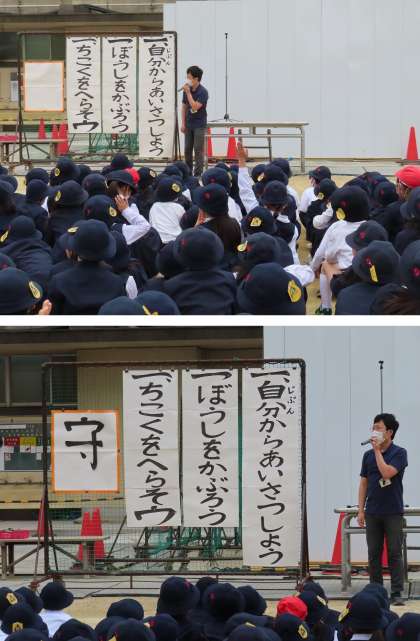 一、自分からあいさつしよう
じぶん
一、ぼうしをかぶろう
一、ちこくをへらそう
一、自分からあいさつしよう
じぶん
一、ぼうしをかぶろう
一、ちこくをへらそう
守